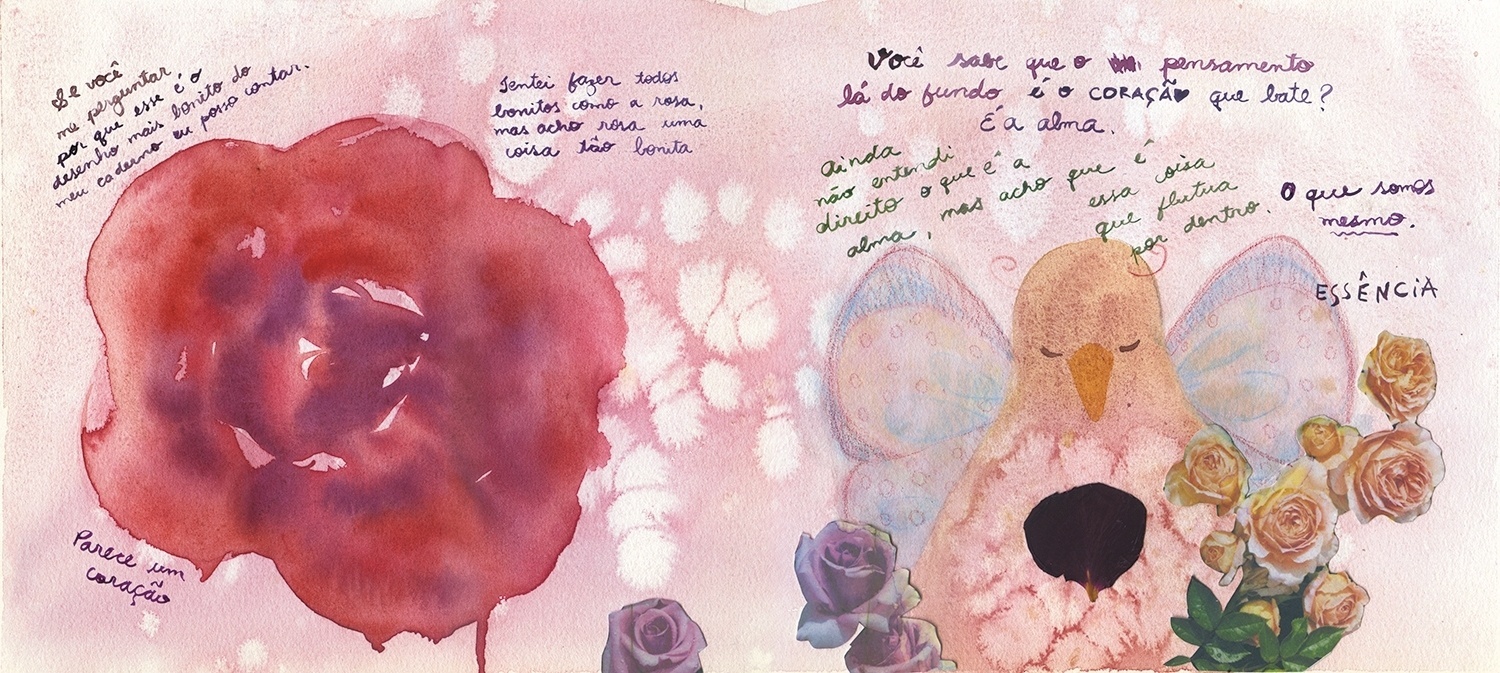 Se você
me perguntar
por que esse é o
desenho mais bonito do
meu caderno eu posso contar.
Tentei fazer todos
bonitos como a rosa,
mas acho rosa uma
coisa tão bonita
Parece um
coração
Você sabe que o pensamento
lá do fundo é o CORAÇÃO que bate?
É a alma.
ainda
não entendi
direito o que é a
alma, mas acho que é
essa coisa
que flutua
por dentro.
O que somos
mesmo.
ESSÊNCIA